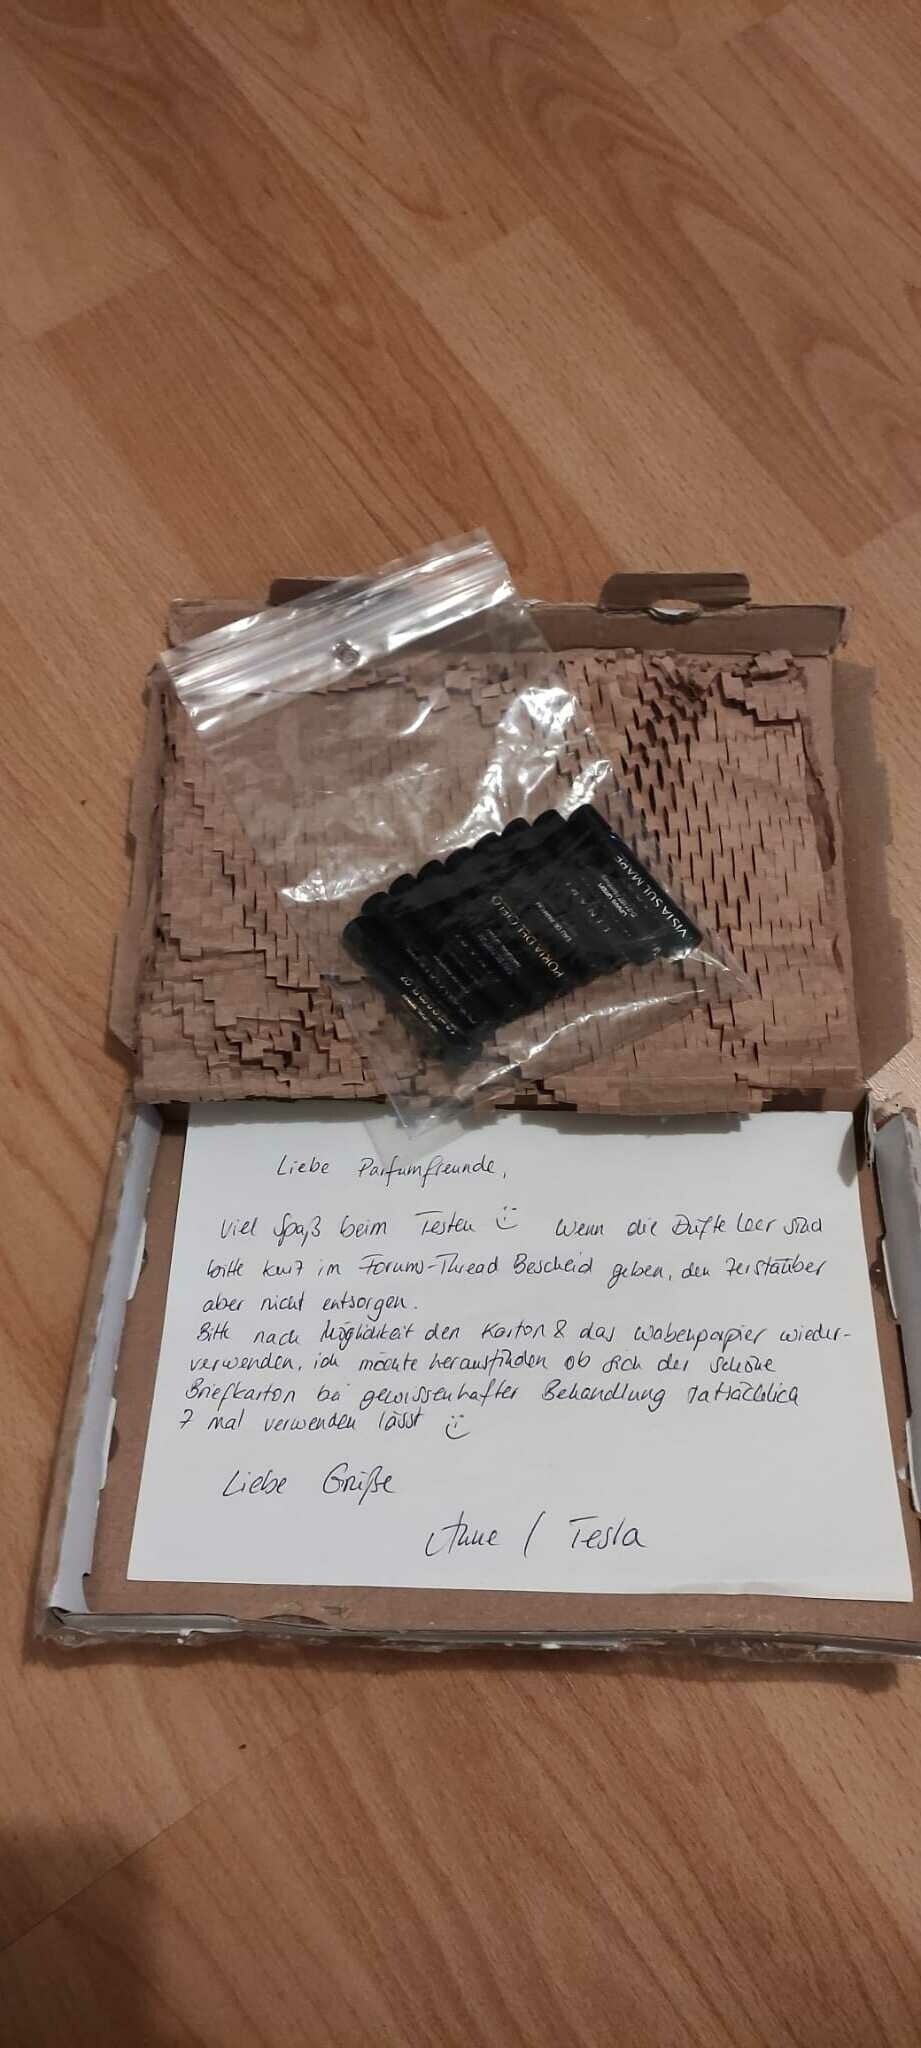 VISTA SUL MARE
EAU DE PARFUM
PORTA DEL CIELO
Liebe Parfumfreunde,
Viel Spaß beim Testen Wenn die Düfte leer sind
bitte kurz im Forums-Thread Bescheid geben, den Zerstäuber
aber nicht entsorgen.
Bitte nach Möglichkeit den Karton & das Wabenpapier wieder-
verwenden, ich möchte herausfinden ob sich der schöne
Briefkarton bei gewissenhafter Behandlung tatsächlich
7 mal verwenden lässt
Liebe Grüße
Anne / Tesla